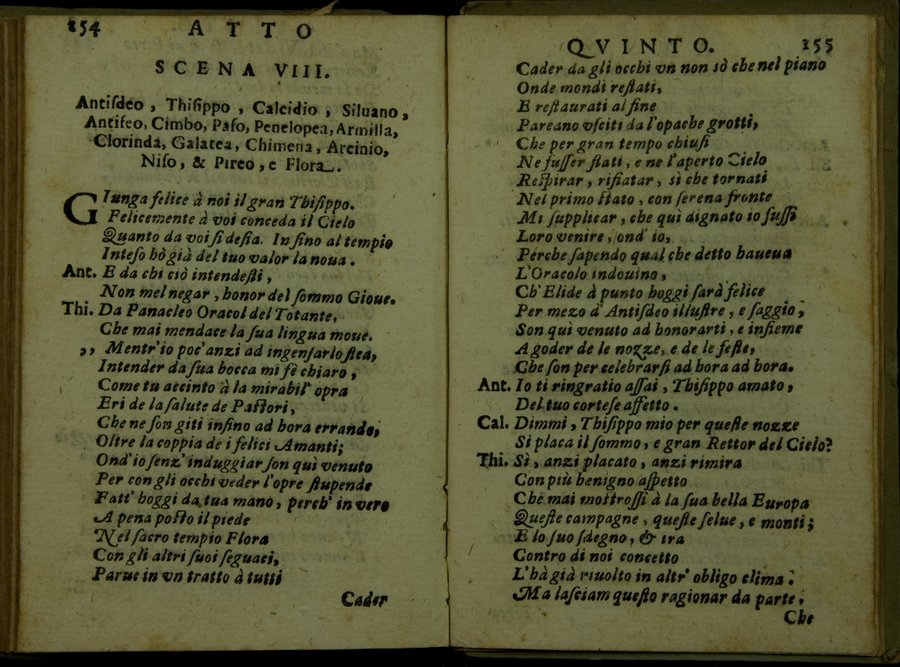 154 ATTO
SCENA VIII.
Antiſdeo, Thiſippo, Calcidio, Siluano,
Antifeo, Cimbo, Paſo, Penelopea, Armilla,
Clorinda, Galatea, Chimena, Arcinio,
Niſo, & Pireo, e Flora.
GIunga felice à noi il gran Thiſippo.
Felicemente à voi conceda il Cielo
Quanto da voi ſi deſia. Inſino al tempio
Inteſo hò già del tuo valor la noua.
Ant. E da chi ciò intendeſti,
Non mel negar, honor del ſommo Gioue.
Thi. Da Panacleo Oracol del Totante,
Che mai mendace la ſua lingua moue.
,, Mentr'io poc'anzi ad ingenſarlo ſtea,
Intender da ſua bocca mi fè chiaro,
Come tu accinto à la mirabil' opra
Eri de la ſalute de Paſtori,
Che ne ſon giti inſino ad hora errando,
Oltre la coppia de i felici Amanti;
Ond'io ſenz' induggiar ſon quì venuto
Per con gli occhi veder l'opre ſtupende
Fatt' hoggi da tua mano, perch' in vero
A pena poſto il piede
Nel ſacro tempio Flora
Con gli altri ſuoi ſeguaci,
Parue in vn tratto à tutti
Cader
QVINTO. 155
Cader da gli occhi vn non sò che nel piano
Onde mondi reſtati,
E reſtaurati al fine
Pareano vſciti da l'opache grotti,
Che per gran tempo chiuſi
Ne fuſſer ſtati, e ne l'aperto Cielo
Reſpirar, rifiatar, sì che tornati
Nel primo ſtato, con ſerena fronte
Mi ſupplicar, che quì dignato io fuſſi
Loro venire, ond' io,
Perche ſapendo qual che detto haueua
L'Oracolo indouino,
Ch' Elide à punto hoggi ſarà felice
Per mezo d'Antiſdeo illuſtre, e ſaggio,
Son quì venuto ad honorarti, e inſieme
A goder de le nozze, e de le feſte,
Che ſon per celebrarſi ad hora ad hora.
Ant. Io ti ringratio aſſai, Thiſippo amato,
Del tuo corteſe affetto.
Cal. Dimmi, Thiſippo mio per queſte nozze
Si placa il ſommo, e gran Rettor del Cielo?
Thi. Sì, anzi placato, anzi rimira
Con più benigno aſpetto
Che mai moſtroſſi à la ſua bella Europa
Queſte campagne, queſte ſelue, e monti;
E lo ſuo ſdegno, & ira
Contro di noi concetto
L'hà già riuolto in altr' obligo clima.
Ma laſciam queſto ragionar da parte,
Che